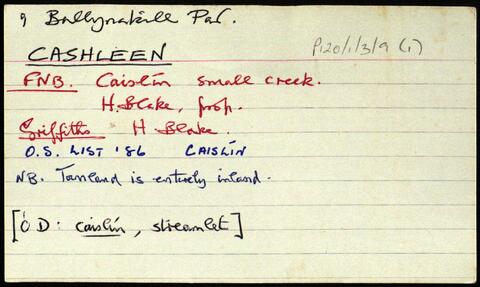 9 Ballynakill Par.
CASHLEEN
P120/1/3/9 (1)
FNB. Caislín small creek.
H. Blake, prop.
Griffiths H Blake.
O.S. LIST '86 CAISLÍN
NB. Townland is entirely inland.
[Ó D: caislín, streamlet]